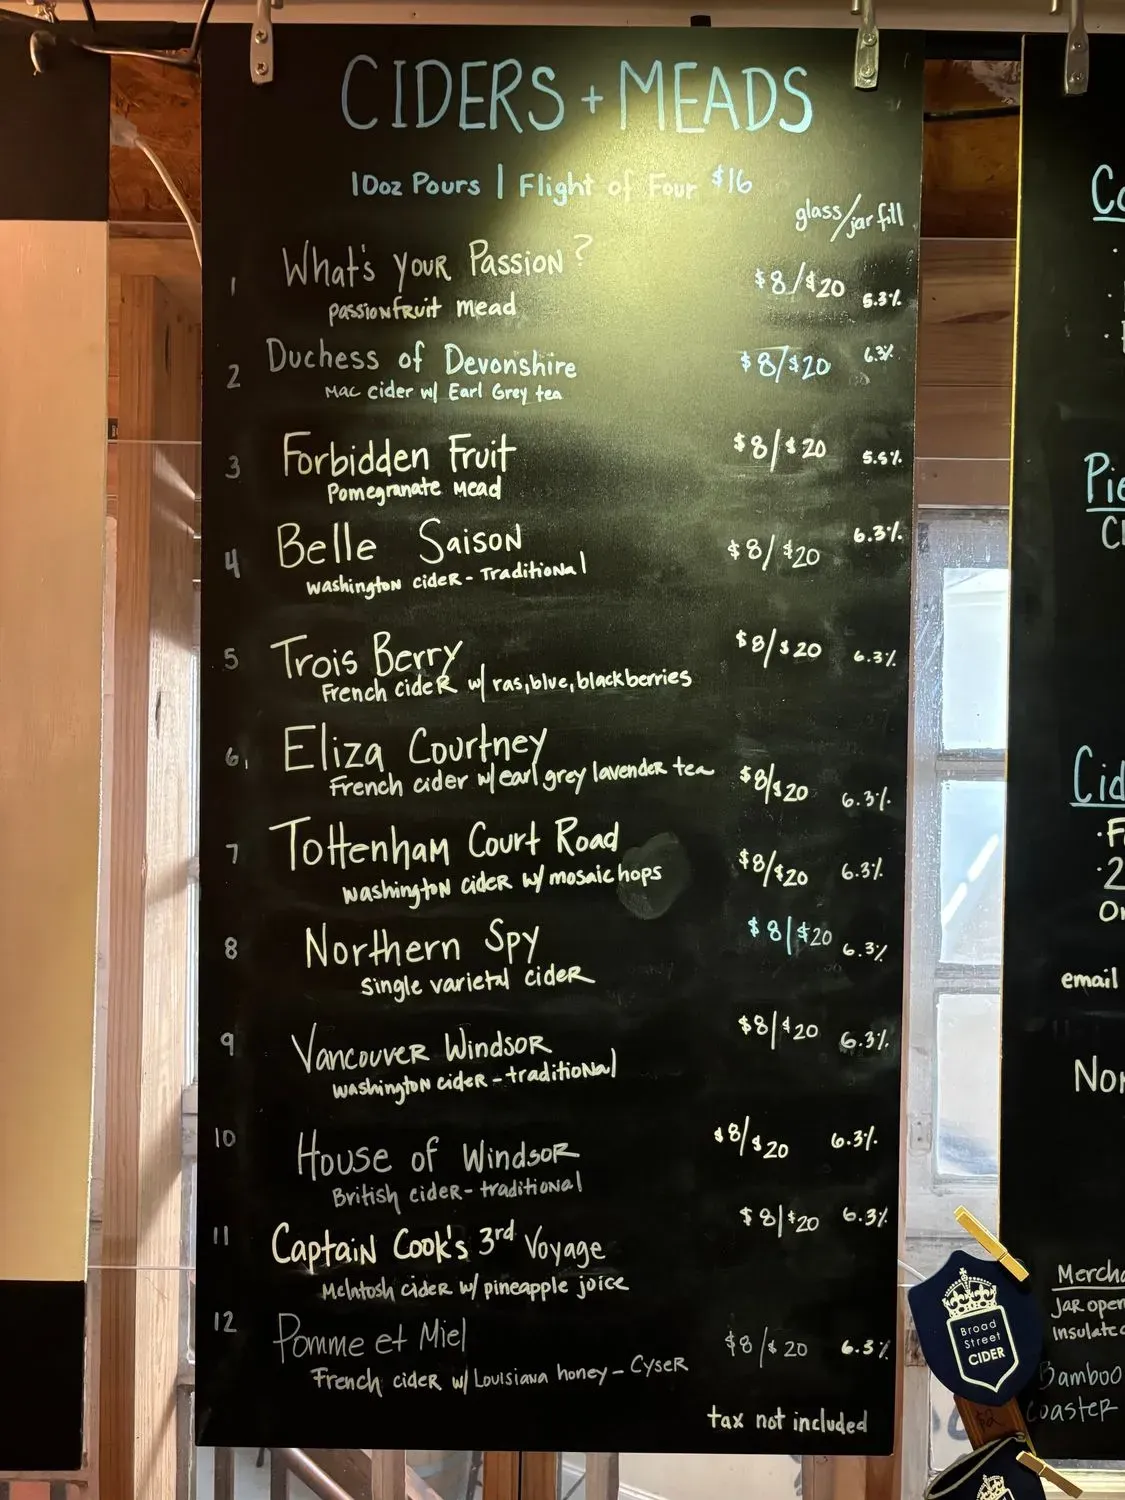 CIDERS + MEADS
10oz Pours | Flight of Four $16
glass/jar fill
1 What's your Passion? $8/$20 5.3%
passionfruit mead
2 Duchess of Devonshire $8/$20 6.3%
Mac cider w/ Earl Grey tea
3 Forbidden Fruit $8/$20 5.5%
Pomegranate Mead
4 Belle Saison $8/$20 6.3%
Washington cider - Traditional
5 Trois Berry $8/$20 6.3%
French cider w/ ras, blue, blackberries
6. Eliza Courtney $8/$20 6.3%
French cider w/ earl grey lavender tea
7 Tottenham Court Road $8/$20 6.3%
Washington cider w/ mosaic hops
8 Northern Spy $8/$20 6.3%
Single varietal cider
9 Vancouver Windsor $8/$20 6.3%
Washington cider - traditional
10 House of Windsor $8/$20 6.3%
British cider - traditional
11 Captain Cook's 3rd Voyage $8/$20 6.3%
McIntosh cider w/ pineapple juice
12 Pomme et Miel $8/$20 6.3%
French cider w/ Louisiana honey - Cyser
tax not included
email
Jar open
Bamboo
Coaster
$2
Broad
Street
CIDER